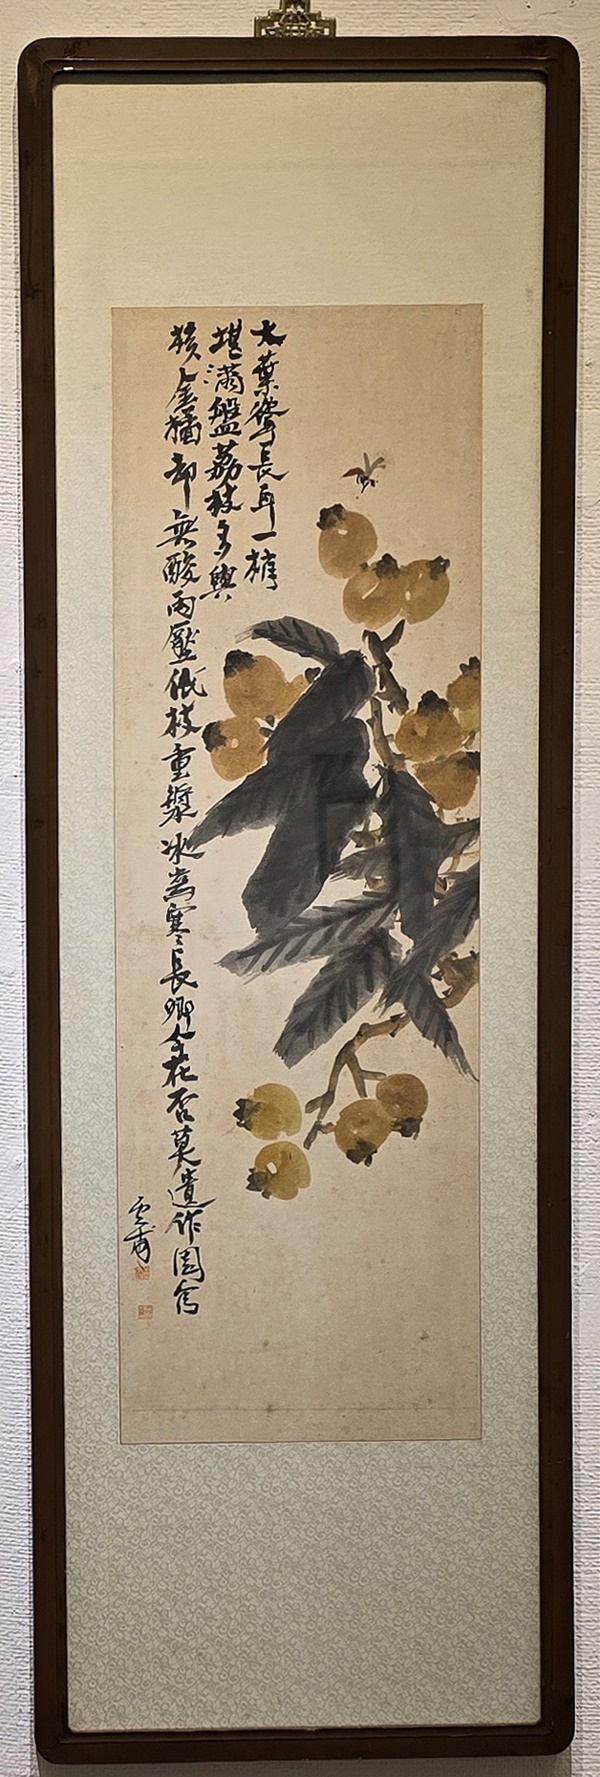 大葉聳長耳一梢
堪滿盤荔枝多與
核金橘却無酸雨壓低枝重漿冰寒長卿今在否莫遣作園官
雲甫